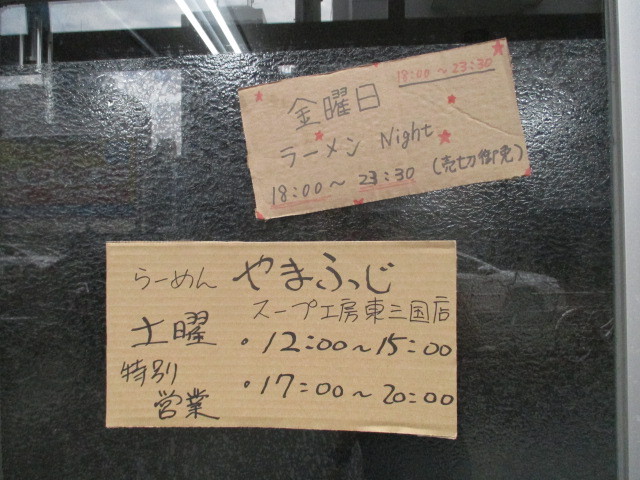 18:00～23:30
金曜日
ラーメン Night
18:00～23:30 (売切御免)
らーめん やまふじ
スープ工房東三国店
土曜 ・12:00～15:00
特別
営業 ・17:00～20:00